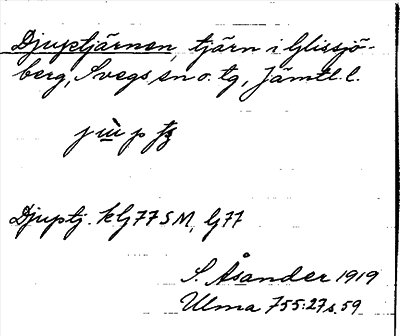 Djuptjärnen, tjärn i Glissjö-
berg, Svegs sn o. tg, Jämtl. l.
Djuptj. k G77 SM, G77
S. Åsander 1919
Ulma 755:27 s. 59